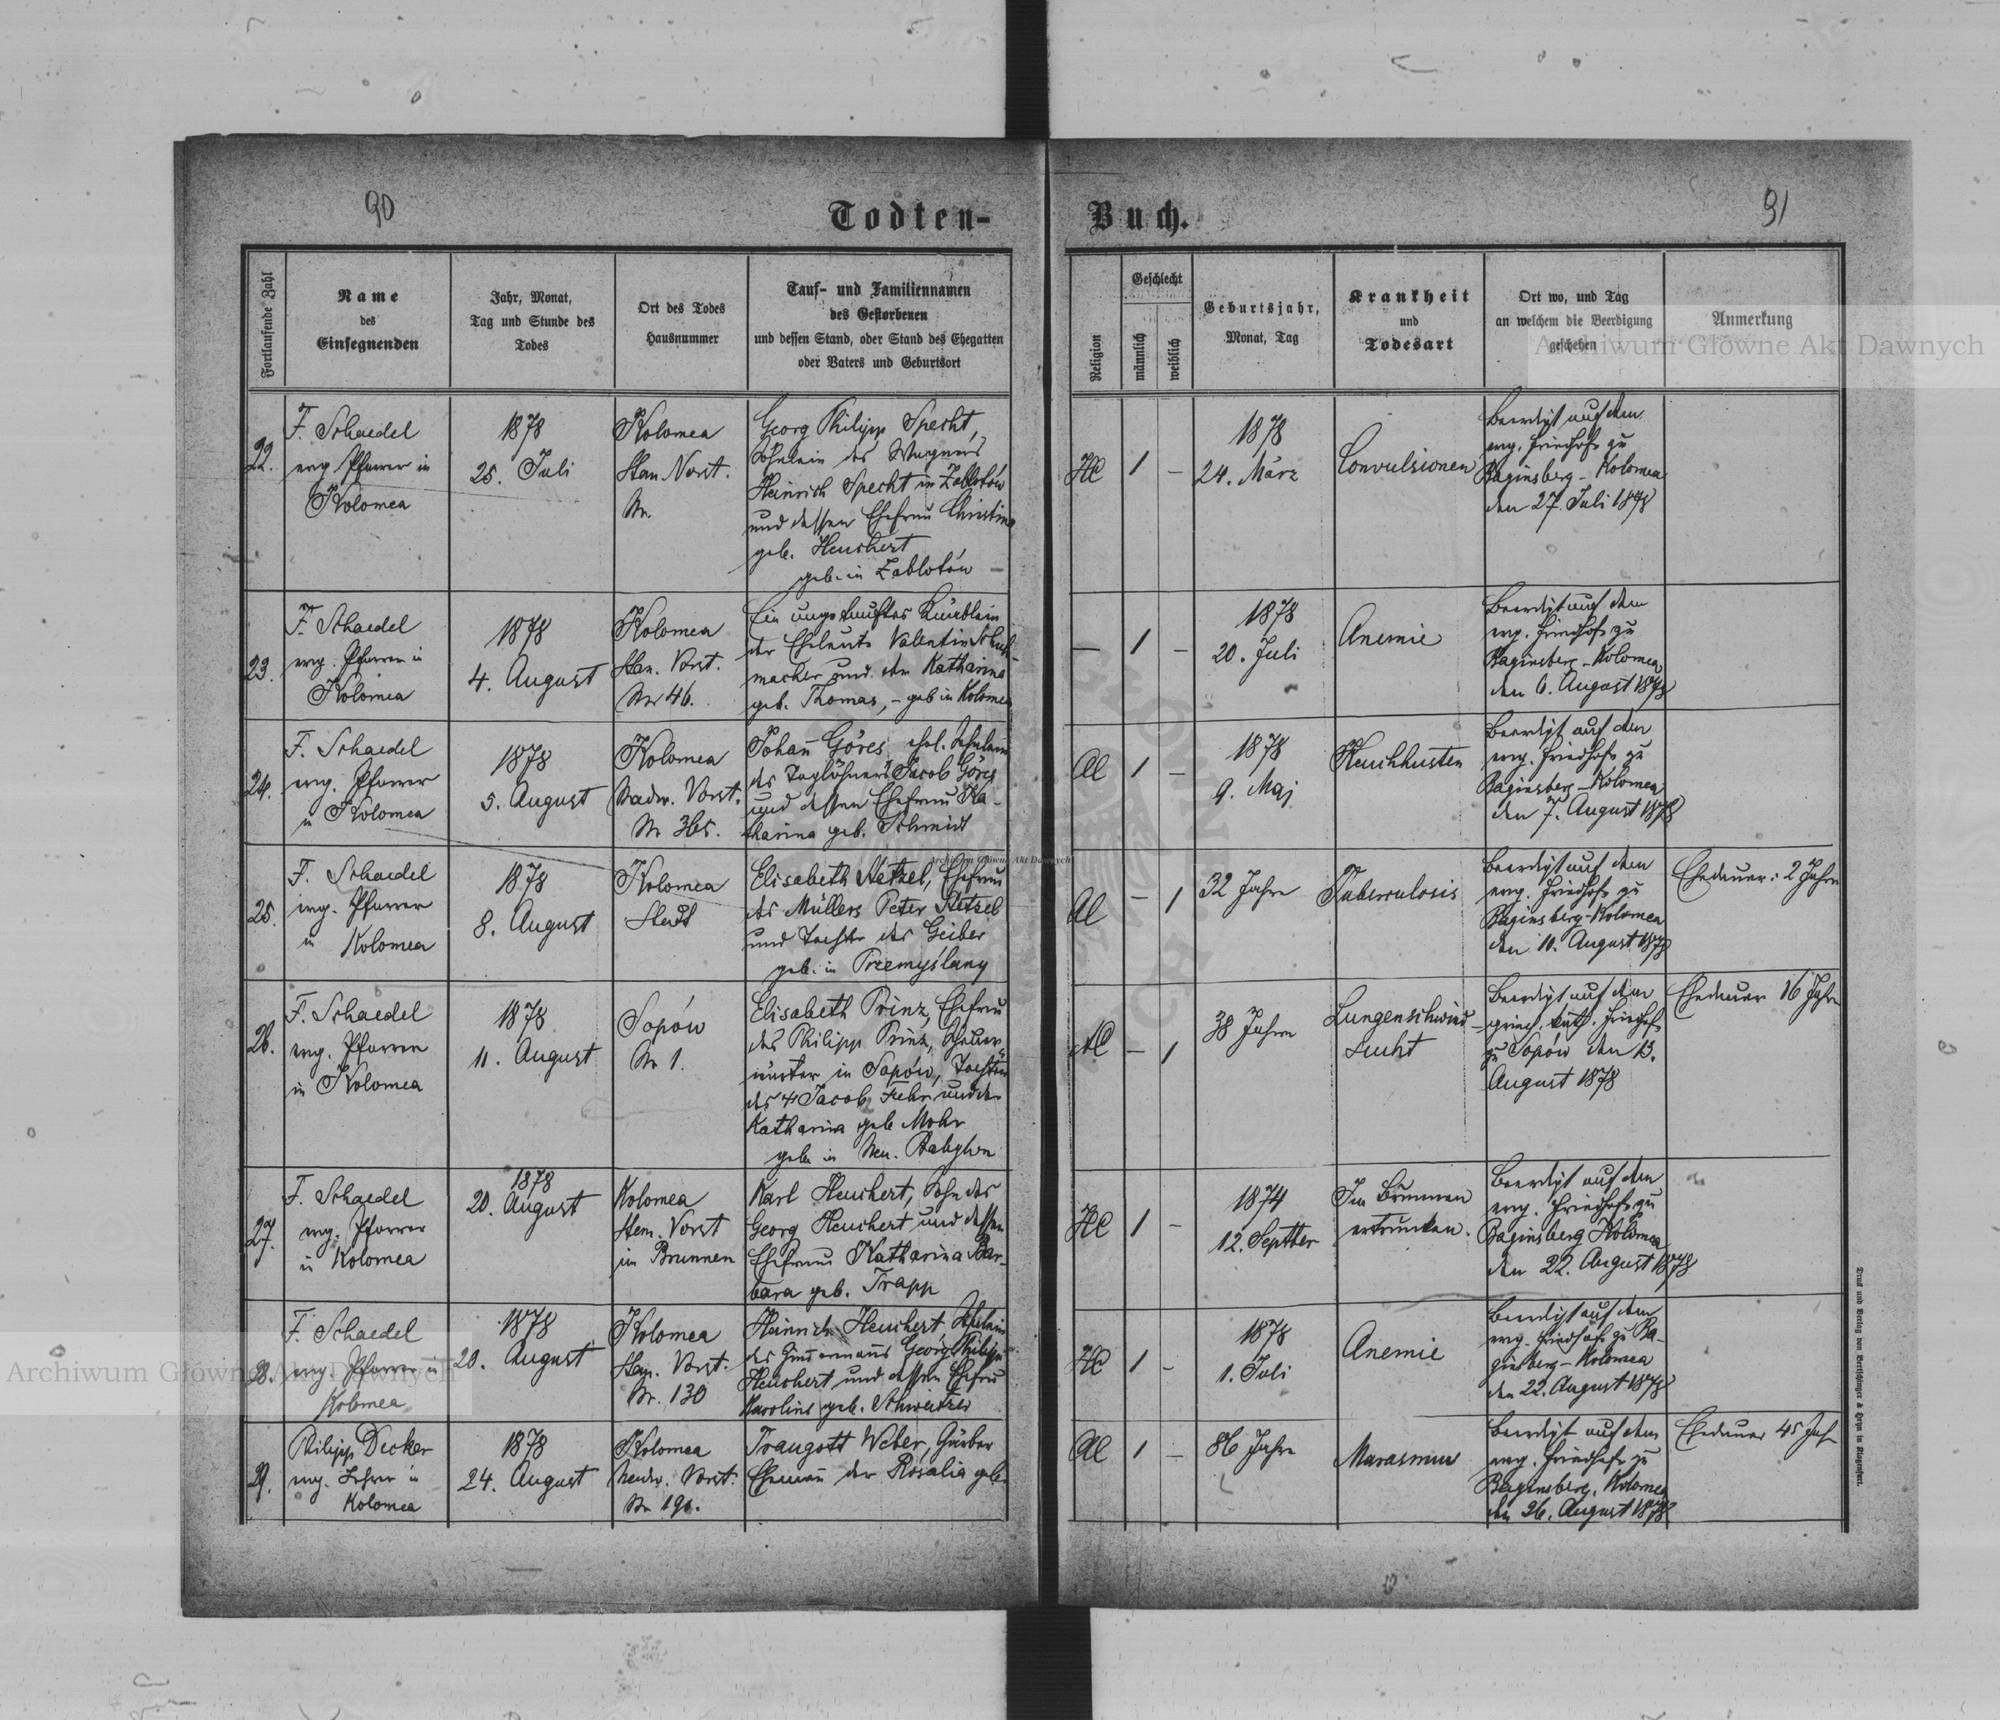 90
Todten-
Buch.
91
Fortlaufende Zahl
Name
des
Einsegnenden
Jahr, Monat,
Tag und Stunde des
Todes
Ort des Todes
Hausnummer
Tauf- und Familiennamen
des Gestorbenen
und dessen Stand, oder Stand des Ehegatten
oder Vaters und Geburtsort
Religion
Geschlecht
männlich
weiblich
Geburtsjahr,
Monat, Tag
Krankheit
und
Todesart
Ort wo, und Tag
an welchem die Beerdigung
geschehen
Anmerkung
22.
F. Schaedel
evg. Pfarrer in
Kolomea
1878
25. Juli
Kolomea
Stan. Vorst.
Nr.
Georg Philipp Specht,
Söhnlein des Wagners
Heinrich Specht in Zablotów
und dessen Ehefrau Christine
geb. Heuchert
geb. in Zablotów
HC
1
–
1878
24. März
Convulsionen
Beerdigt auf dem
evg. Friedhofe zu
Baginsberg-Kolomea
den 27. Juli 1878
23.
F. Schaedel
evg. Pfarrer in
Kolomea
1878
4. August
Kolomea
Stan. Vorst.
Nr 46.
Ein ungetauftes Knäblein
der Eheleute Valentin Schuh-
macher und der Katharina
geb. Thomas, – geb in Kolomea
—
1
–
1878
20. Juli
Anemie
Beerdigt auf dem
evg. Friedhofe zu
Baginsberg-Kolomea
den 6. August 1878
24.
F. Schaedel
evg. Pfarrer
in Kolomea
1878
5. August
Kolomea
Nadw. Vorst.
Nr 365.
Johann Göres, ehel. Söhnlein
des Taglöhners Jacob Göres
und dessen Ehefrau Ka-
tharina geb. Schmidt
AC
1
–
1878
9. Maj
Keuchhusten
Beerdigt auf dem
evg. Friedhofe zu
Baginsberg-Kolomea
den 7. August 1878
25.
F. Schaedel
evg. Pfarrer
in Kolomea
1878
8. August
Kolomea
Stadt
Elisabeth Hetzel, Ehefrau
des Müllers Peter Hetzel
und Tochter des Geiber
geb. in Przemyślany
AC
–
1
32 Jahre
Tuberculosis
Beerdigt auf dem
evg. Friedhofe zu
Baginsberg-Kolomea
den 10. August 1878
Ehedauer: 2 Jahre
26.
F. Schaedel
evg. Pfarrer
in Kolomea
1878
11. August
Sopów
Nr 1.
Elisabeth Prinz, Ehefrau
des Philipp Prinz,
in Sopów, Tochter
des Jacob Fuhr und der
Katharina geb Mohr
geb. in Neu. Babylon
AC
–
1
38 Jahre
Lungenschwind-
sucht
Beerdigt auf dem
griech. kath. Friedhofe
zu Sopów den 13.
August 1878
Ehedauer 16 Jahre
27.
F. Schaedel
evg. Pfarrer
in Kolomea
1878
20. August
Kolomea
Stan. Vorst
im Brunnen
Karl Heuchert, Sohn des
Georg Heuchert und dessen
Ehefrau Katharina Bar-
bara geb. Trapp
HC
1
–
1874
12. Septber
Im Brunnen
ertrunken.
Beerdigt auf dem
evg. Friedhofe zu
Baginsberg Kolomea
den 22. August 1878
28.
F. Schaedel
evg. Pfarrer in
Kolomea
1878
20. August
Kolomea
Stan. Vorst.
Nr. 130
Heinrich Heuchert Söhnlein
des Georg Philipp
Heuchert und dessen Ehefrau
Karoline geb. Schweitzer
HC
1
–
1878
1. Juli
Anemie
Beerdigt auf dem
evg. Friedhofe zu Ba-
ginsberg-Kolomea
den 22. August 1878
29.
Philipp Decker
evg. Lehrer in
Kolomea
1878
24. August
Kolomea
Nadw. Vorst.
Nr 191.
Traugott Weber, Gärber
Ehemann der Rosalia geb
AC
1
–
86 Jahre
Marasmus
Beerdigt auf dem
evg. Friedhofe zu
Baginsberg, Kolomea
den 26. August 1878
Ehedauer 45 Jah
Druck und Verlag von Bertschinger & Heyn in Klagenfurt.
Archiwum Główne Akt Dawnych
Archiwum Główne Akt Dawnych
Archiwum Główne Akt Dawnych